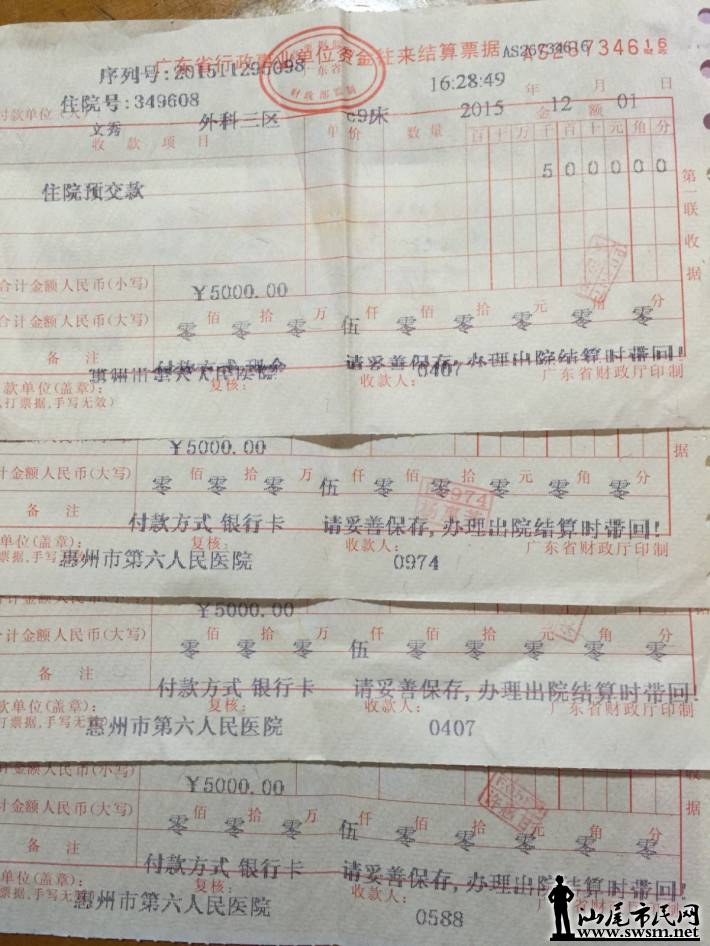 广东省行政事业单位资金往来结算票据 AS26734616 AS26734616
序列号:201511296098
财政部监制
16:28:49
住院号:349608
2015 年 12 月 01 日
付款单位
文秀 外科三区 c9床
收款项目 单价 数量 金额
百 十 万 千 百 十 元 角 分
住院预交款 500000
第一联 收据
合计金额人民币(小写) ¥5000.00
合计金额人民币(大写) 零 佰 零 拾 零 万 伍 仟 零 佰 零 拾 零 元 零 角 零 分
备注 付款方式 现金 请妥善保存,办理出院结算时带回!
款单位(盖章): 惠州市第六人民医院 复核: 收款人: 0407 广东省财政厅印制
打票据,手写无效)
¥5000.00 据
计金额人民币(大写) 零 佰 零 拾 零 万 伍 仟 零 佰 零 拾 零 元 零 角 零 分
0974
备注 付款方式 银行卡 请妥善保存,办理出院结算时带回!
单位(盖章): 复核: 收款人: 广东省财政厅印制
票据,手写无 惠州市第六人民医院 0974
合计金额人民币(小写) ¥5000.00
合计金额人民币(大写) 零 佰 零 拾 零 万 伍 仟 零 佰 零 拾 零 元 零 角 零 分
备注 付款方式 银行卡 请妥善保存,办理出院结算时带回!
款单位(盖章): 复核: 收款人: 广东省财政厅印制
打票据,手写无效) 惠州市第六人民医院 0407
计金额人民币(小写) ¥5000.00 收据
计金额人民币(大写) 零 佰 零 拾 零 万 伍 仟 零 佰 零 拾 零 元 零 角 零 分
备注 付款方式 银行卡 请妥善保存,办理出院结算时带回!
单位(盖章): 复核: 收款人: 广东省
票据,手写无 惠州市第六人民医院 0588
汕尾市民网
www.swsm.net